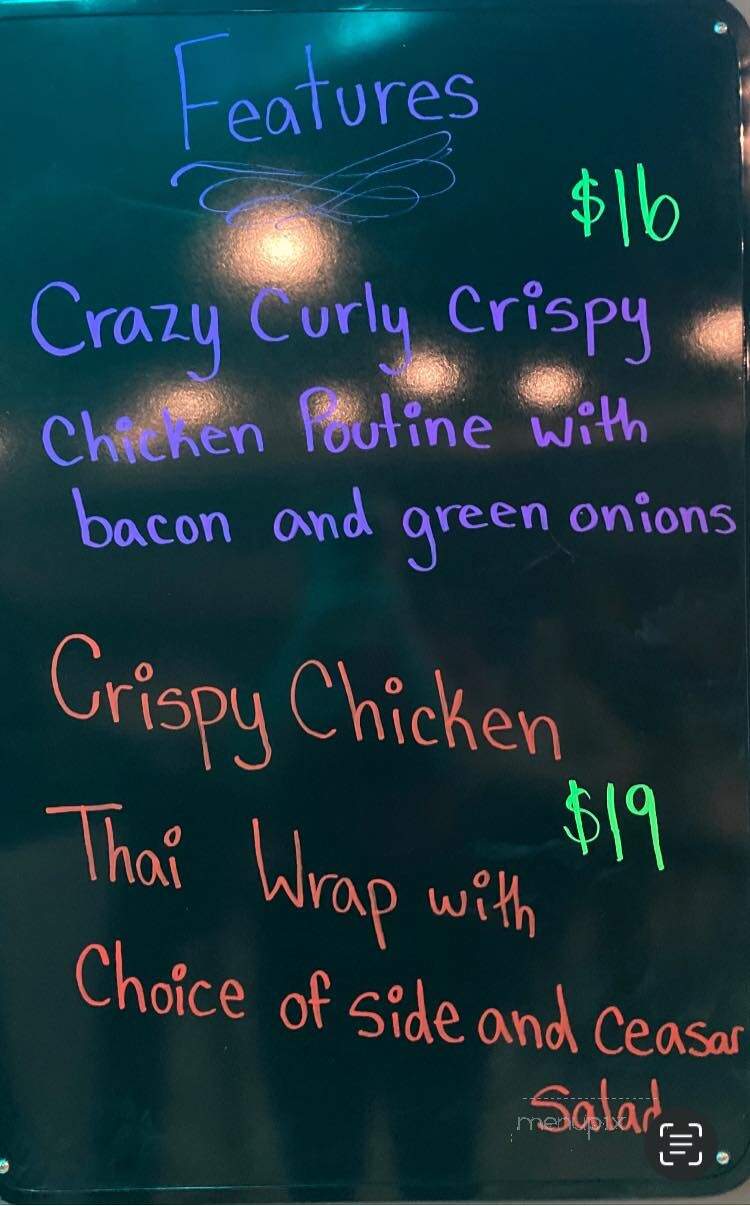 Features
$16
Crazy Curly Crispy
Chicken Poutine with
bacon and green onions
Crispy Chicken
$19
Thai Wrap with
Choice of side and Ceasar
Salad
menupix